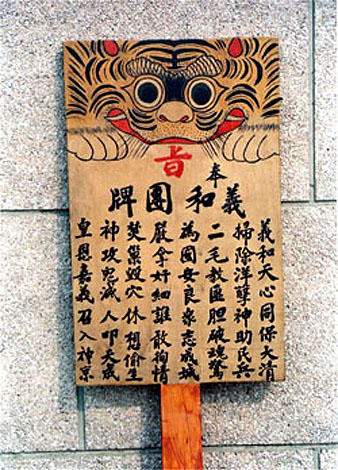 奉旨
義和團牌
義和天心同保大清
掃除洋孽神助民兵
二毛教匪胆破魂驚
為國安良衆志成城
嚴拿奸細誰敢拘情
焚巢毀穴休想偷生
神攻鬼滅人叩天成
皇恩嘉義召入神京